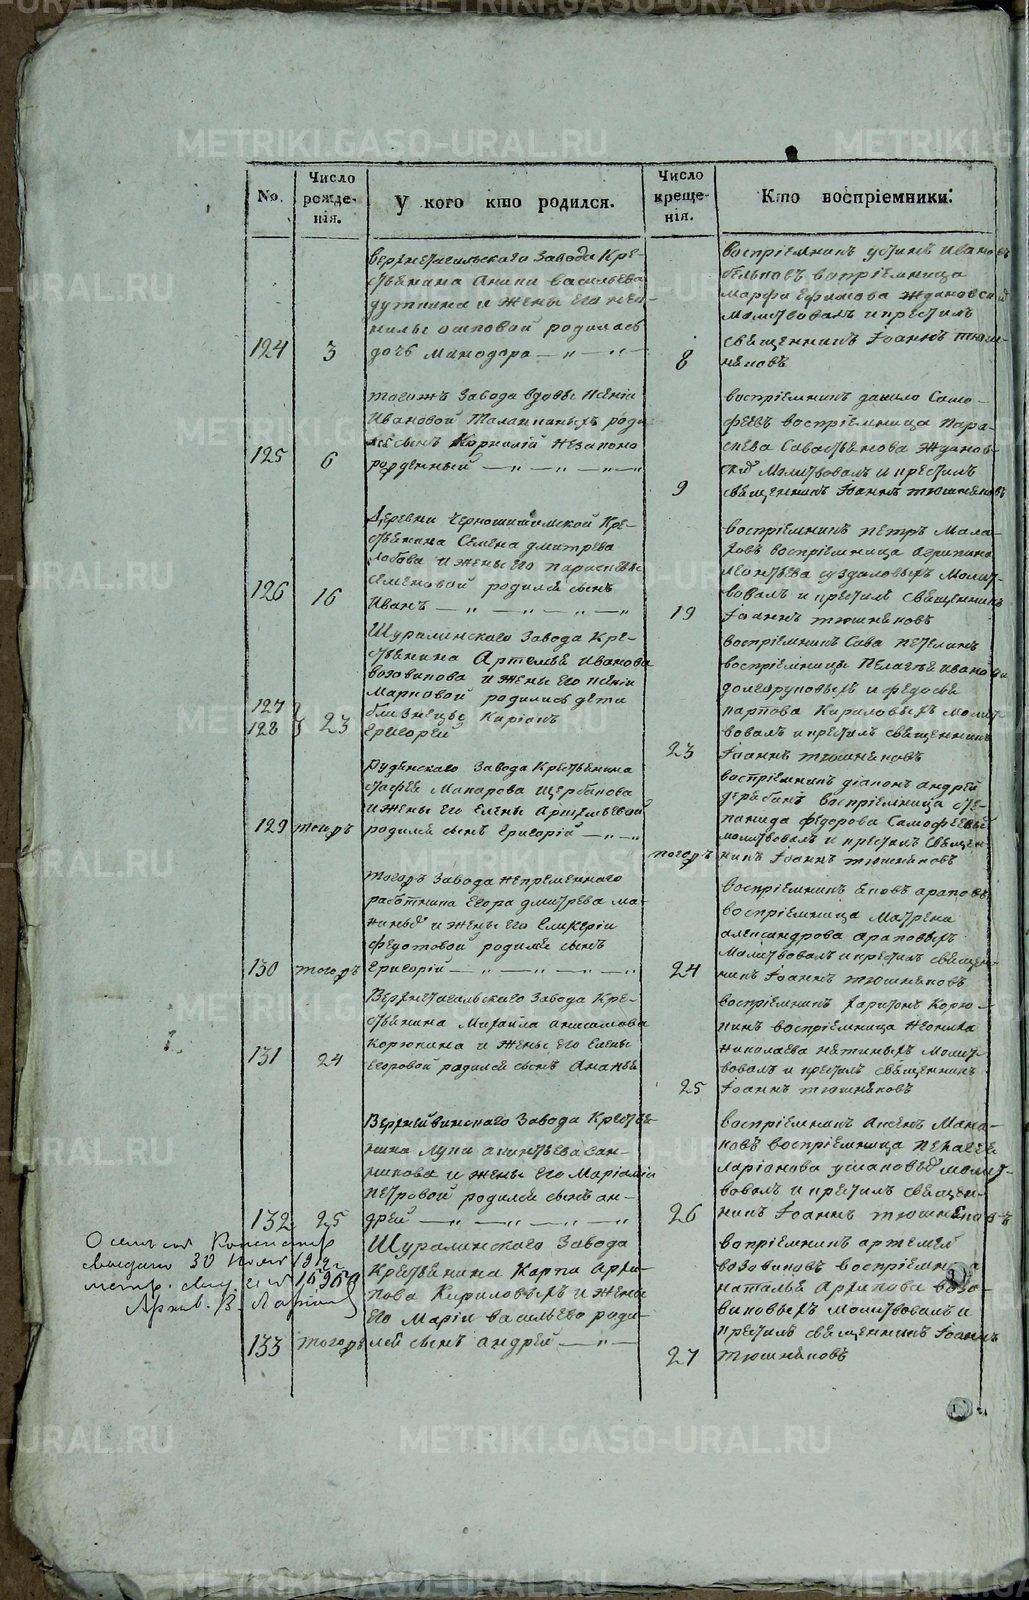 No.
Число рожде-
нія.
У кого кто родился.
Число креще-
нія.
Кто воспріемники.
124
3
верхнетагильскаго завода Кре-
стьянина Анани васильева
и жены его нео-
нилы осиповой родилась
дочь Минодора
8
воспріемникъ устинъ иванов
бельковъ вопріемница
марфа Ефимова ждановски
молитвовалъ и крестилъ
священникъ Іоаннъ тюш-
няковъ
125
6
тогожъ завода вдовы Ксеніи
Ивановой роди
лся сынъ Корнилій незаконо
рожденный
9
воспріемникъ данило Само-
феевъ воспріемница пара-
скева Савастьянова жданов-
ски молитвовалъ и крестилъ
священникъ Іоаннъ тюшняковъ
126
16
Деревни черношишимской Кре-
стьянина Семена дмитрева
лобова и жены его параскевы
семеновой родился сынъ
Иванъ
19
воспріемникъ петръ Мала-
ховъ воспріемница агрипина
леонтьева суздаловыхъ молит-
вовалъ и крестилъ священникъ
Іоаннъ тюшняковъ
127
128
23
Шуралинскаго завода Кре-
стьянина Артемья иванова
возовикова и жены его Ксеніи
Марковой родились дети
близнецы Киріакъ
Григорей
23
воспріемникъ Сава петелинъ
воспріемницы Пелагея иванова
долгоруковыхъ и федосья
карпова Кириловыхъ молит-
вовалъ и крестилъ священникъ
Іоаннъ тюшняковъ
129
тогожъ
Рудянскаго завода Крестьянина
Макарова щербакова
и жены его Елены Артемьевой
родился сынъ Григорій
тогожъ
воспріемникъ діаконъ андрей
дерябинъ воспріемница сте-
панида федорова Самофеевы
молитвовалъ и крестилъ священ-
никъ Іоаннъ тюшняковъ
130
тогожъ
тогожъ завода непременнаго
работника Егора дмитрева ма-
и жены его Гликеріи
федотовой родился сынъ
Григорій
24
воспріемникъ яковъ араповъ
воспріемница матрена
александрова араповыхъ
молитвовалъ и крестилъ священ-
никъ Іоаннъ тюшняковъ
131
24
Верхнетагильскаго завода Кре-
стьянина Михаила анисимова
Корюкина и жены его Елены
егоровой родился сынъ Ананья
25
воспріемникъ харитонъ Корю-
кинъ воспріемница неонила
николаева молит-
вовалъ и крестилъ священникъ
Іоаннъ тюшняковъ
132
25
Верхнейвинскаго завода Крестья-
нина Лупи
и жены его Маріаміи
петровой родился сынъ ан-
дрей
26
воспріемникъ Аксенъ Мана-
ковъ воспріемница пелагея
ларіонова молит-
вовалъ и крестилъ священ-
никъ Іоаннъ тюшняковъ
133
тогожъ
Шуралинскаго завода
Крестьянина Карпа Архи-
пова Кириловыхъ и жены
его Маріи васильево роди-
лся сынъ андрей
27
вопріемникъ артемей
возовиковъ воспріемница
наталья Архипова возо-
виковыхъ молитвовалъ и
крестилъ священникъ Іоаннъ
тюшняковъ
О семъ
выдано 30 1912 г.
метр. свид.
Архив. В.
METRIKI.GASO-URAL.RU